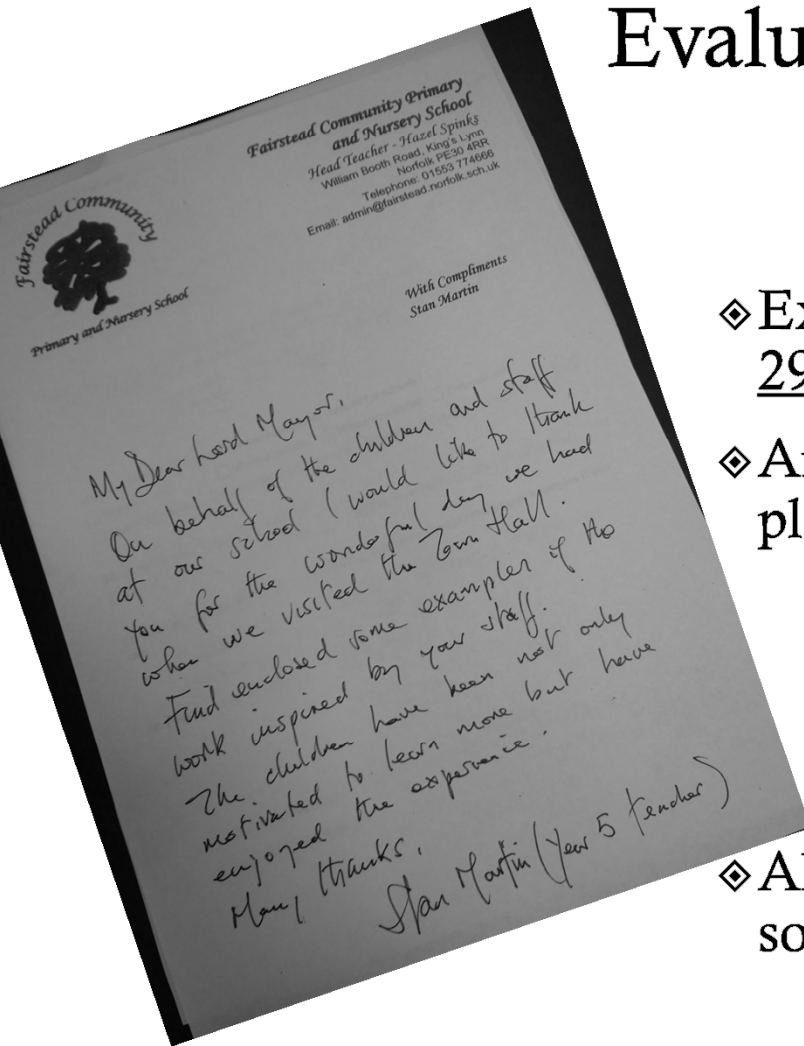 Evalu
Fairstead Community Primary
and Nursery School
Head Teacher - Hazel Spinks
William Booth Road, King's Lynn
Norfolk PE30 4RR
Telephone: 01553 774666
Email: admin@fairstead.norfolk.sch.uk
Fairstead Community
Primary and Nursery School
With Compliments
Stan Martin
My Dear Lord Mayor,
On behalf of the children and staff
at our school I would like to thank
you for the wonderful day we had
when we visited the Town Hall.
Find enclosed some examples of the
work inspired by your staff.
The children have been not only
motivated to learn more but have
enjoyed the experience.
Many thanks,
Stan Martin (Year 5 teacher)
Ex
29
pl
so